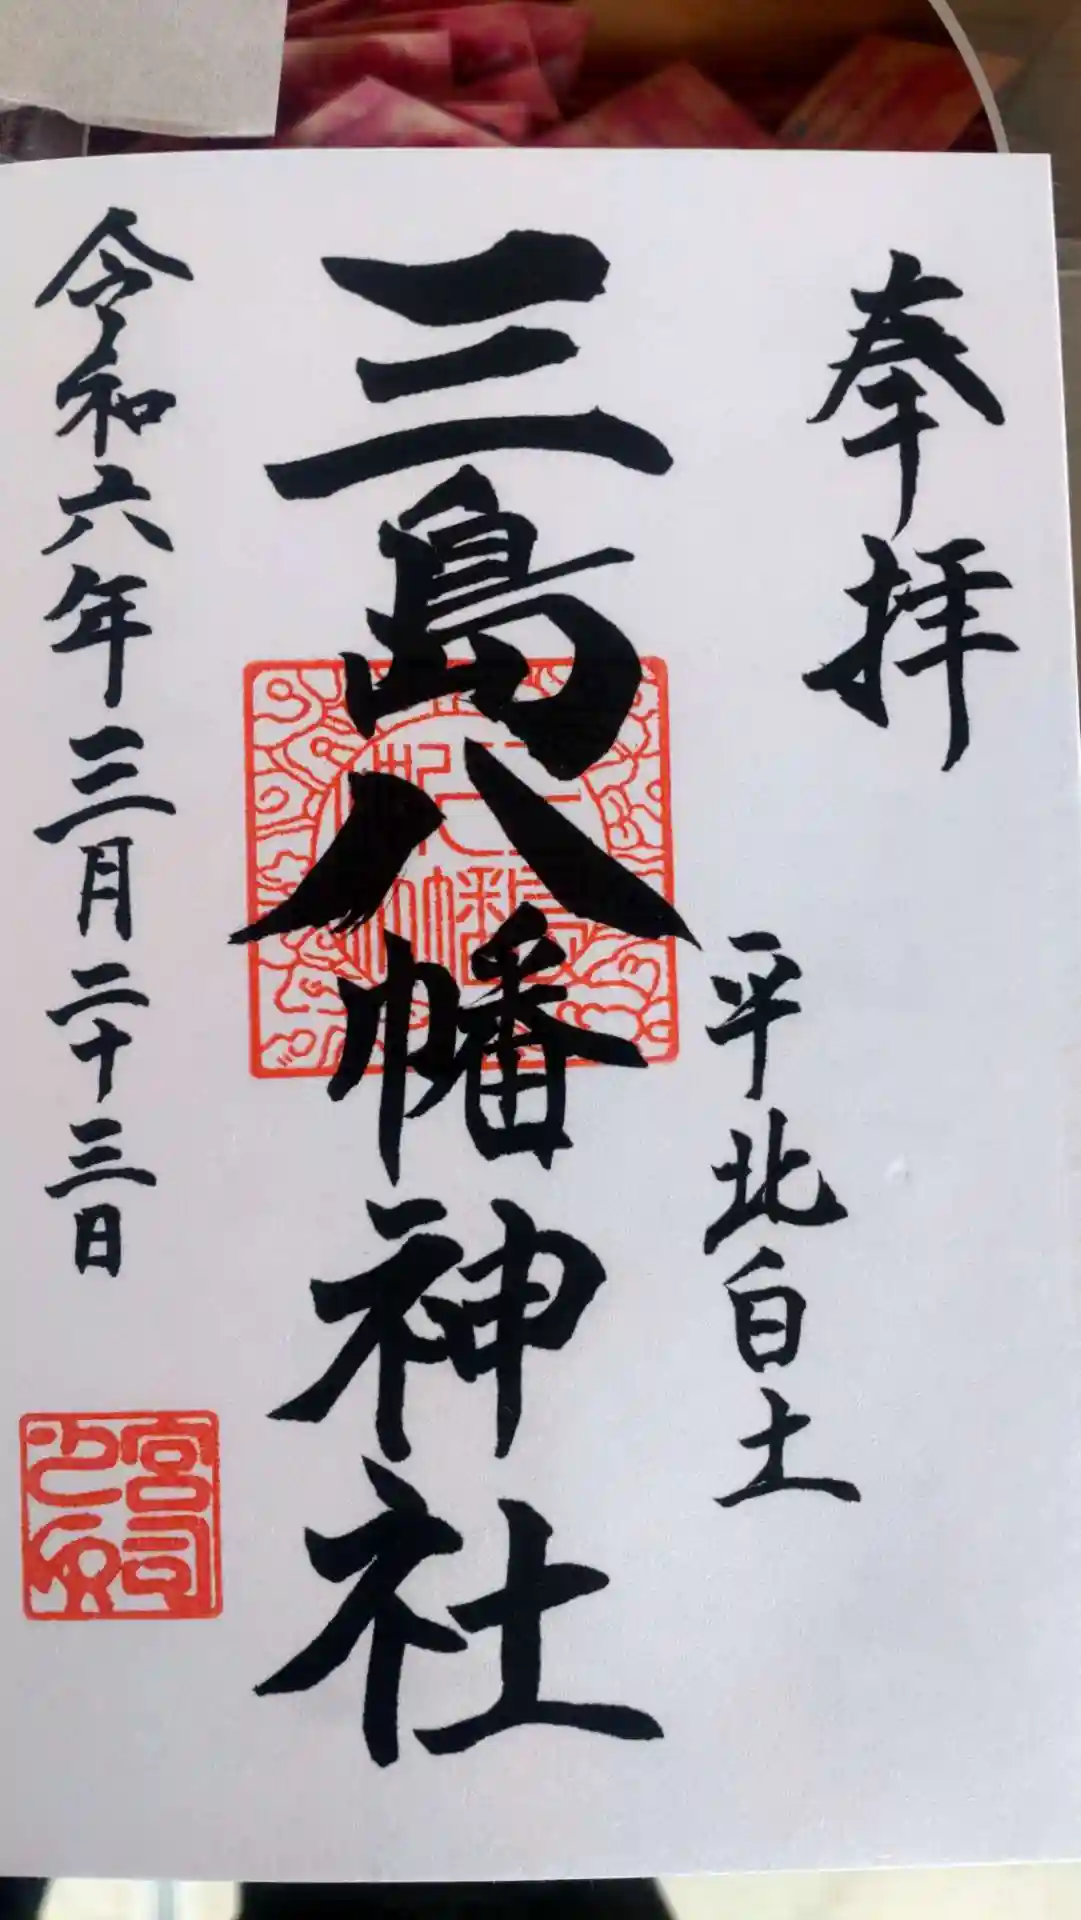 奉拝
平北白土
三島八幡神社
令和六年三月二十三日
宮司之印